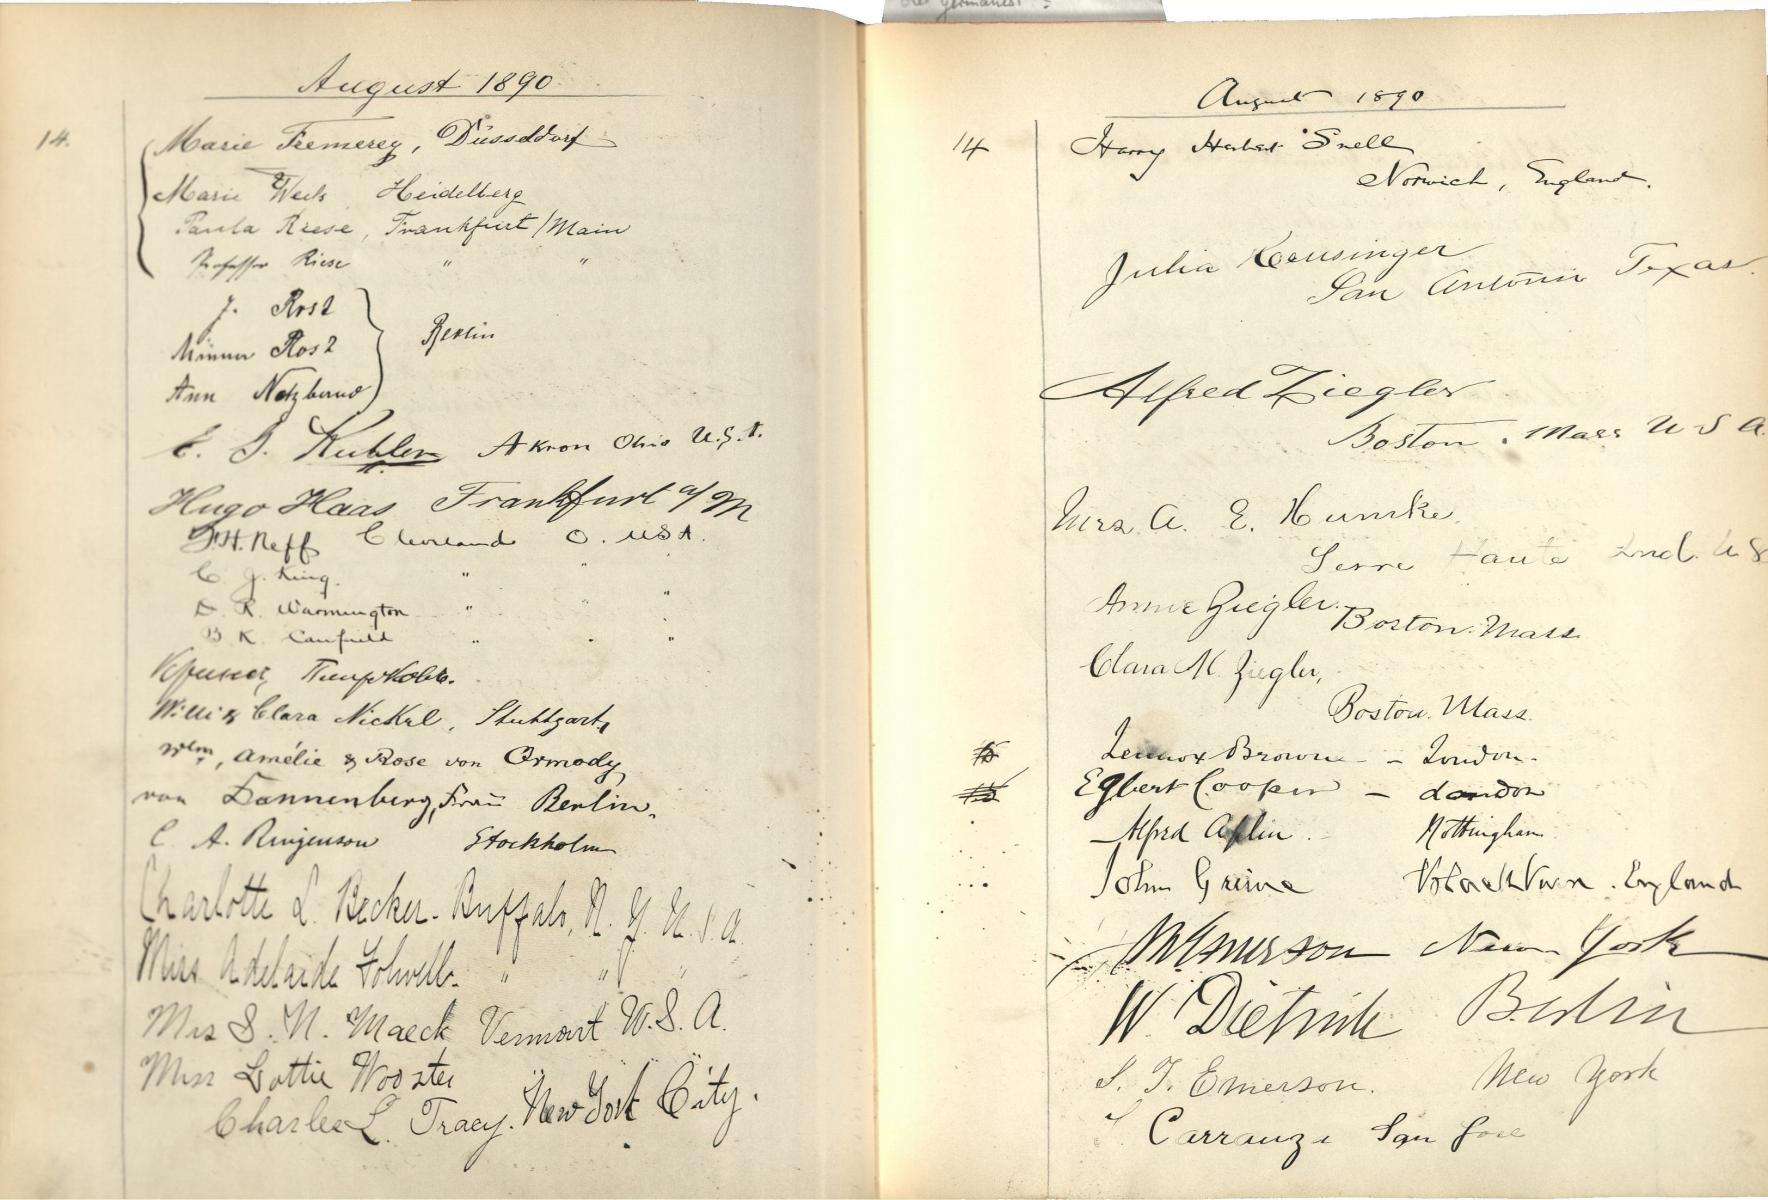 August 1890
14.
Marie Fremerey, Düsseldorf
Marie Heidelberg
Paula Riese, Frankfurt/Main
Professor Riese " "
J. Rost
Rost
Berlin
Ann
C. Akron Ohio U.S.A.
Hugo Haas Frankfurt a/M
F.H. Neff Cleveland O. USA.
C. J. King. " " "
D. R. Warmington " " "
B K Canfield " " "
Willi & Clara Nickel, Stuttgart,
Wlm, Amélie & Rose von Ormody
von Dannenberg, Frau Berlin.
C. A. Ringenson Stockholm
Charlotte L. Becker. Buffalo, N. Y. U.S.A.
Miss Adelaide " " "
Mrs S. N. Maeck Vermont U.S.A.
Miss Lottie Wooster " " "
Charles L. Tracy. New York City.
August 1890
14
Harry Herbert Snell
Norwich, England.
Julia Kensinger
San Antonio Texas.
Alfred Ziegler
Boston. Mass U S A.
Mrs. A. E.
Terre Haute Ind. U S
Annie Ziegler.
Boston. Mass
Clara M. Ziegler,
Boston. Mass.
Lennox Browne - - London.
Egbert Cooper - London
Alfred Aplin - Nottingham
John England
Emerson New York
W. Dietrich Berlin
Emerson. New York
San Jose